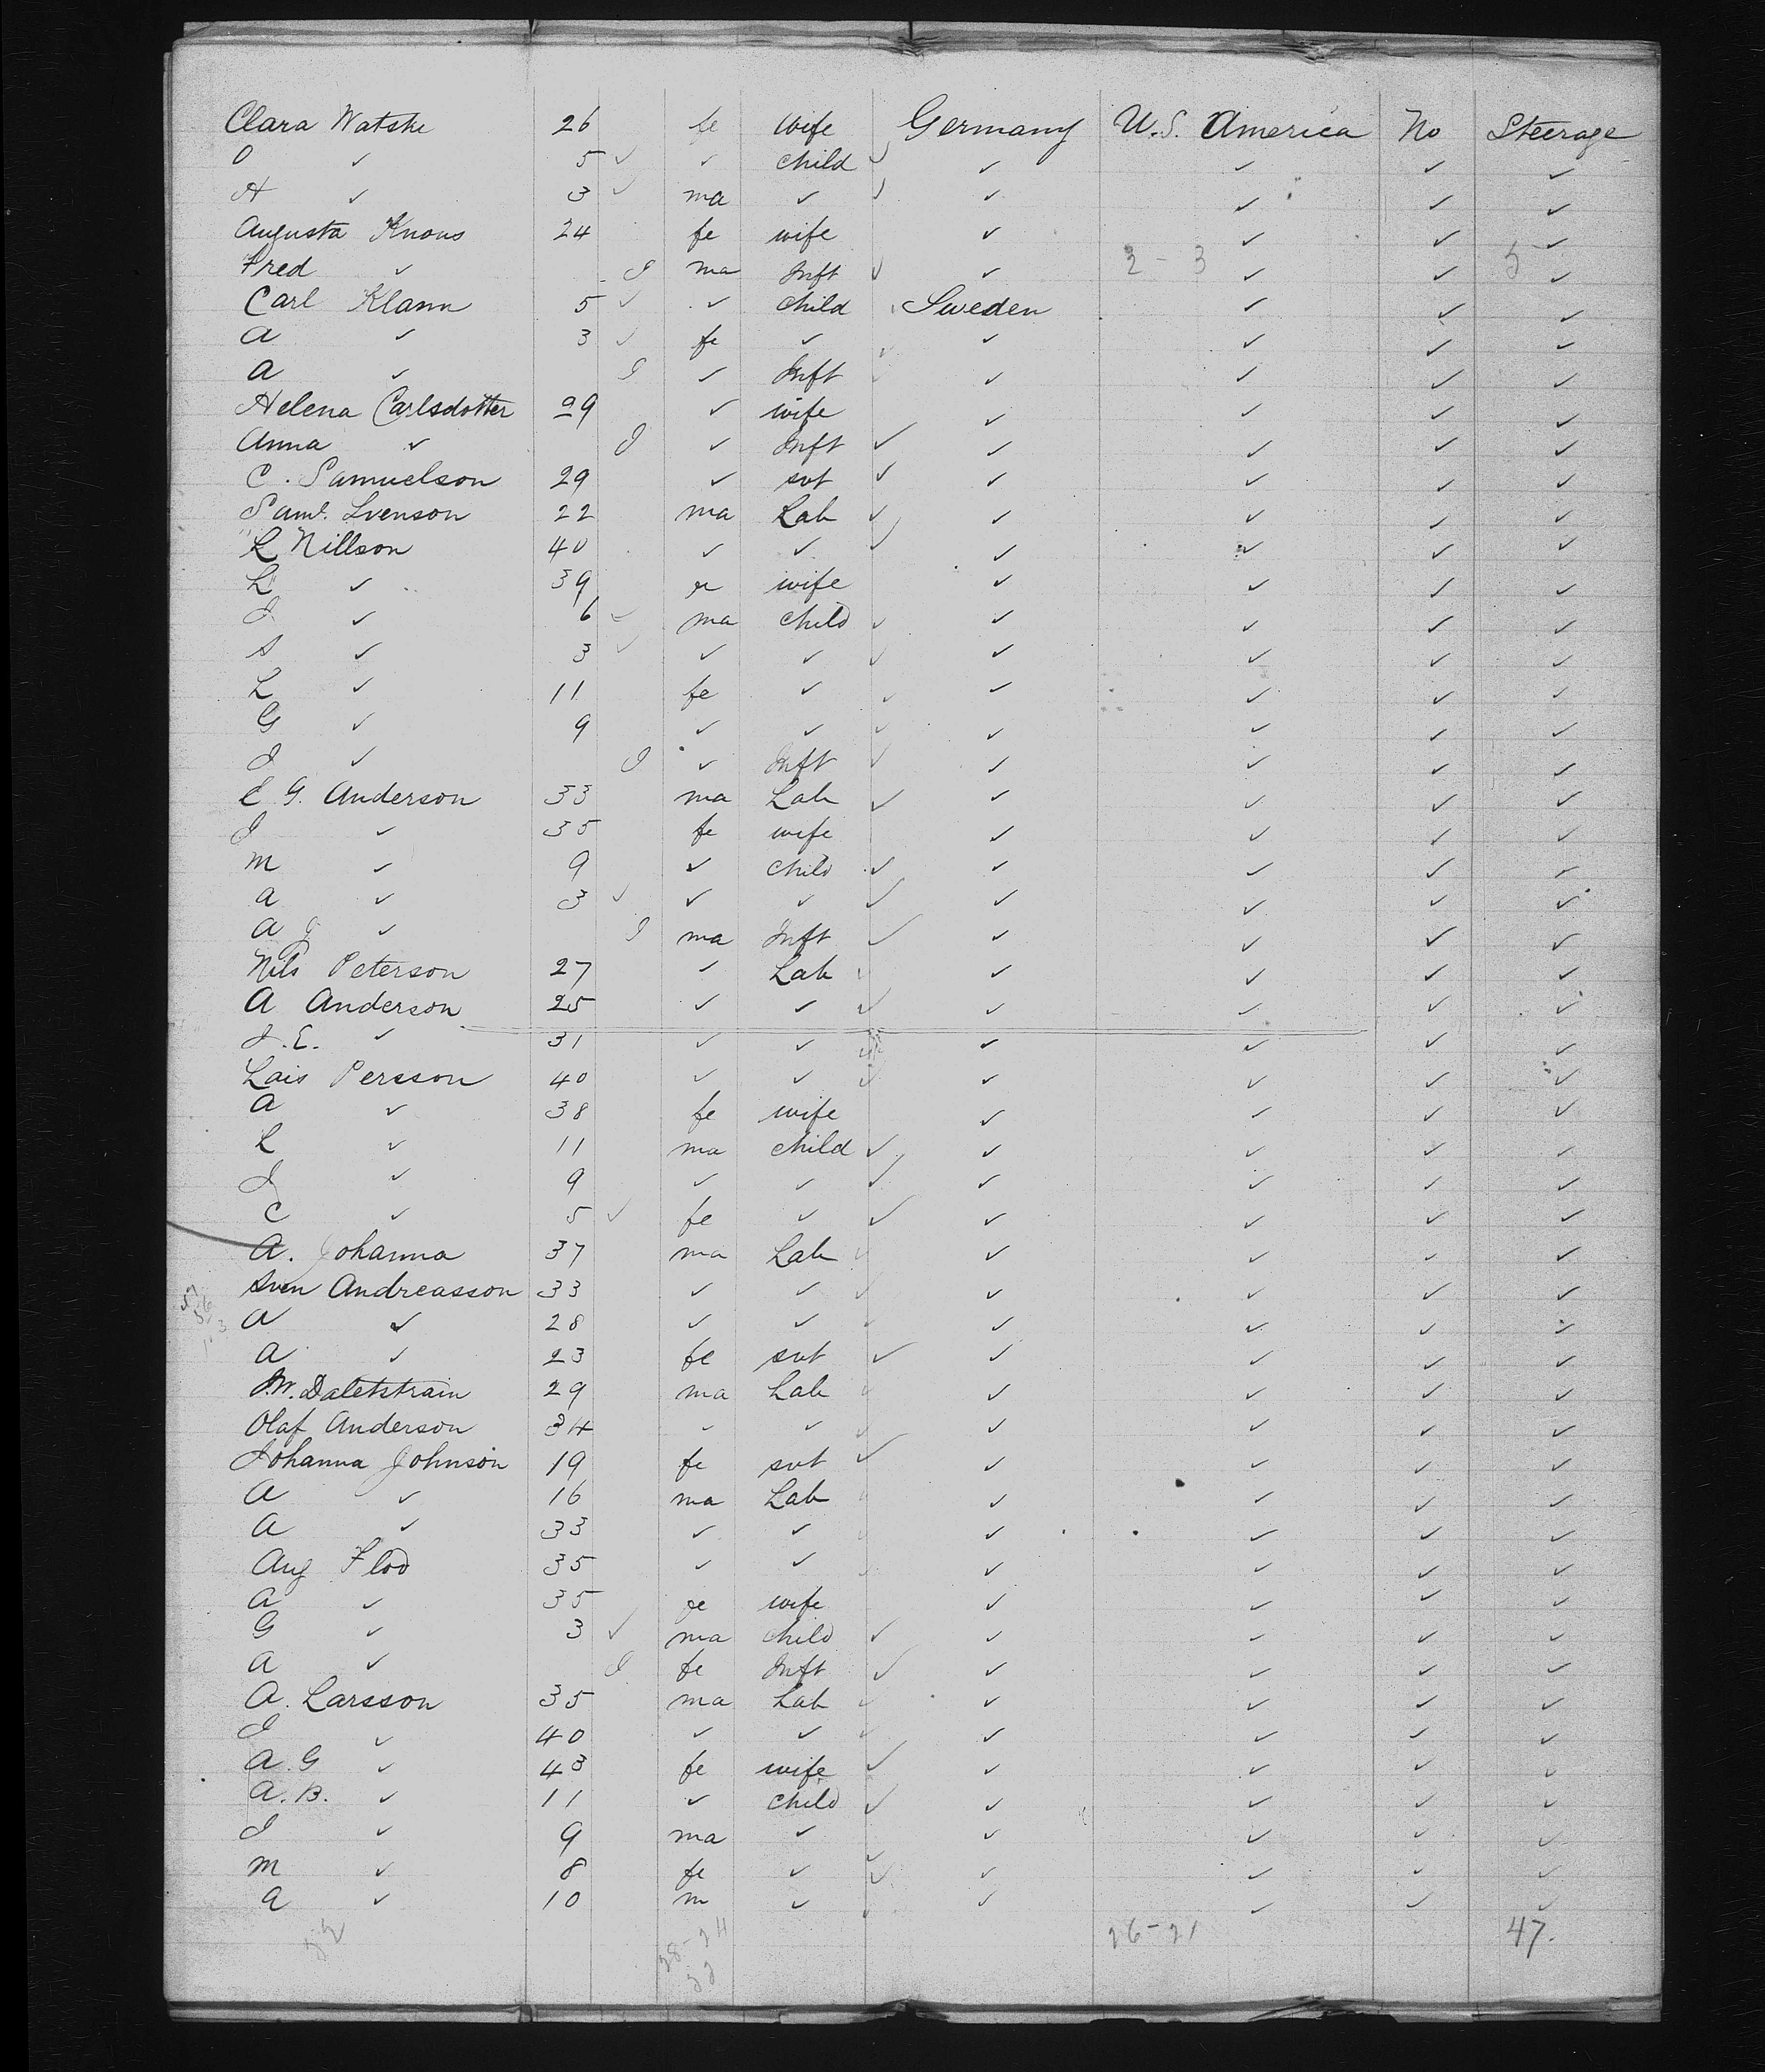 Clara Watske 26 fe wife Germany U.S. America No Steerage
O ✓ 5 ✓ ✓ child ✓ ✓ ✓ ✓ ✓
A ✓ 3 ✓ ma ✓ ✓ ✓ ✓ ✓ ✓
Augusta Knous 24 fe wife ✓ ✓ ✓ ✓
Fred ✓ I ma Inft ✓ ✓ 2 - 3 ✓ ✓ 5 ✓
Carl Klann 5 ✓ ✓ child Sweden ✓ ✓ ✓
A ✓ 3 ✓ fe ✓ ✓ ✓ ✓ ✓ ✓
A ✓ I ✓ Inft ✓ ✓ ✓ ✓ ✓
Helena Carlsdotter 29 ✓ wife ✓ ✓ ✓ ✓
Anna ✓ I ✓ Inft ✓ ✓ ✓ ✓ ✓
C. Samuelson 29 ✓ svt ✓ ✓ ✓ ✓ ✓
Saml. Svenson 22 ma Lab ✓ ✓ ✓ ✓ ✓
L Nillson 40 ✓ ✓ ✓ ✓ ✓ ✓ ✓
L ✓ 39 fe wife ✓ ✓ ✓ ✓
I ✓ 6 ✓ ma child ✓ ✓ ✓ ✓ ✓
S ✓ 3 ✓ ✓ ✓ ✓ ✓ ✓ ✓ ✓
L ✓ 11 fe ✓ ✓ ✓ ✓ ✓ ✓
G ✓ 9 ✓ ✓ ✓ ✓ ✓ ✓ ✓
I ✓ I ✓ Inft ✓ ✓ ✓ ✓ ✓
C G. Anderson 33 ma Lab ✓ ✓ ✓ ✓ ✓
I ✓ 35 fe wife ✓ ✓ ✓ ✓
M ✓ 9 ✓ child ✓ ✓ ✓ ✓ ✓
A ✓ 3 ✓ ✓ ✓ ✓ ✓ ✓ ✓ ✓
A J ✓ I ma Inft ✓ ✓ ✓ ✓ ✓
Nils Peterson 27 ✓ Lab ✓ ✓ ✓ ✓ ✓
A Anderson 25 ✓ ✓ ✓ ✓ ✓ ✓ ✓
J.E. ✓ 31 ✓ ✓ ✓ ✓ ✓ ✓ ✓
Lais Persson 40 ✓ ✓ ✓ ✓ ✓ ✓ ✓
A ✓ 38 fe wife ✓ ✓ ✓ ✓
L ✓ 11 ma child ✓ ✓ ✓ ✓ ✓
I ✓ 9 ✓ ✓ ✓ ✓ ✓ ✓ ✓
C ✓ 5 ✓ fe ✓ ✓ ✓ ✓ ✓ ✓
A. Johanna 37 ma Lab ✓ ✓ ✓ ✓ ✓
Sven Andreasson 33 ✓ ✓ ✓ ✓ ✓ ✓ ✓
A ✓ 28 ✓ ✓ ✓ ✓ ✓ ✓ ✓
A ✓ 23 fe svt ✓ ✓ ✓ ✓ ✓
J.W. Daletstrain 29 ma Lab ✓ ✓ ✓ ✓ ✓
Olaf Anderson 34 ✓ ✓ ✓ ✓ ✓ ✓ ✓
Johanna Johnson 19 fe svt ✓ ✓ ✓ ✓ ✓
A ✓ 16 ma Lab ✓ ✓ ✓ ✓ ✓
A ✓ 33 ✓ ✓ ✓ ✓ ✓ ✓ ✓
Aug Flod 35 ✓ ✓ ✓ ✓ ✓ ✓ ✓
A ✓ 35 fe wife ✓ ✓ ✓ ✓
G ✓ 3 ✓ ma child ✓ ✓ ✓ ✓ ✓
A ✓ I fe Inft ✓ ✓ ✓ ✓ ✓
A. Larsson 35 ma Lab ✓ ✓ ✓ ✓ ✓
I ✓ 40 ✓ ✓ ✓ ✓ ✓ ✓ ✓
A.G ✓ 43 fe wife ✓ ✓ ✓ ✓ ✓
A.B. ✓ 11 ✓ child ✓ ✓ ✓ ✓ ✓
I ✓ 9 ma ✓ ✓ ✓ ✓ ✓ ✓
M ✓ 8 fe ✓ ✓ ✓ ✓ ✓ ✓
A ✓ 10 m ✓ ✓ ✓ ✓ ✓ ✓
52 28-24 26-21 47.